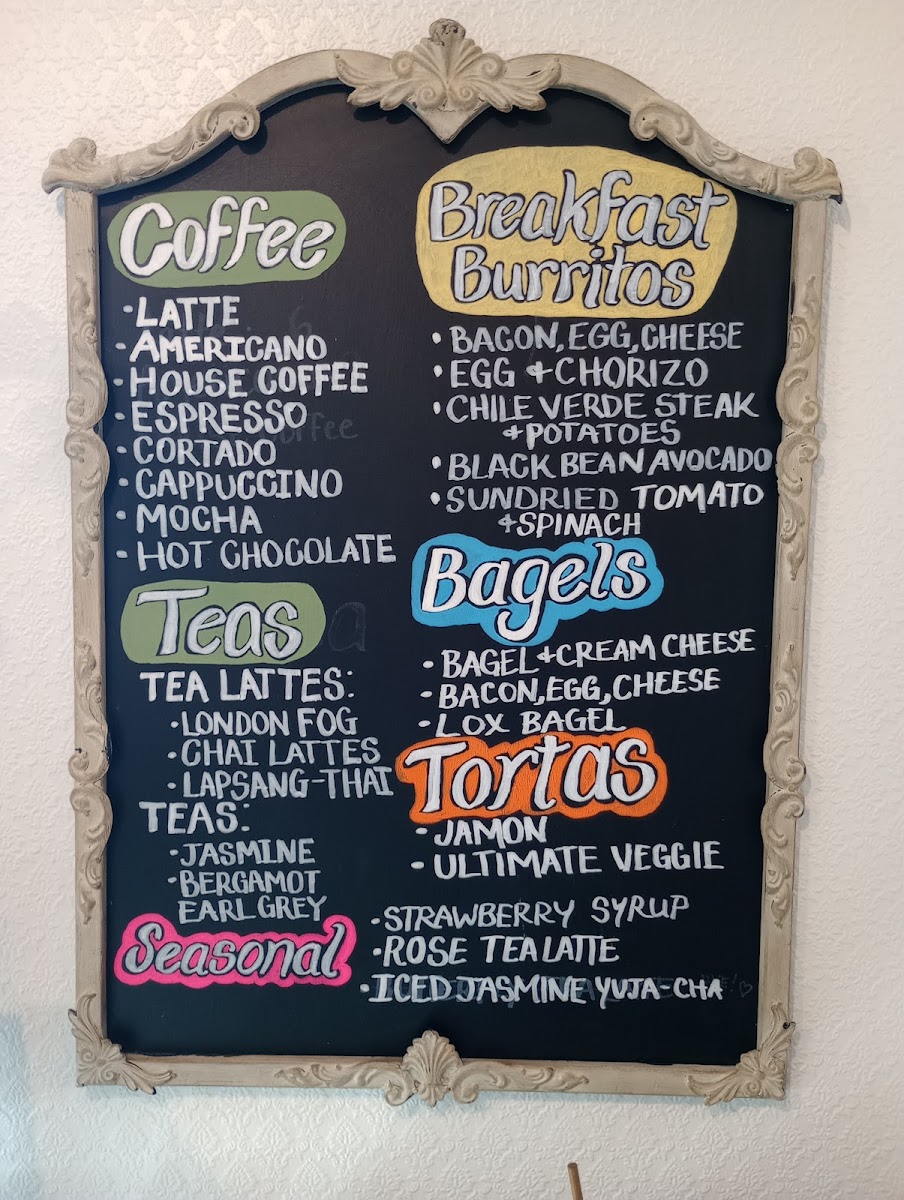 Coffee
• LATTE
• AMERICANO
• HOUSE COFFEE
• ESPRESSO
• CORTADO
• CAPPUCCINO
• MOCHA
• HOT CHOCOLATE
Teas
TEA LATTES:
• LONDON FOG
• CHAI LATTES
• LAPSANG-THAI
TEAS:
• JASMINE
• BERGAMOT
EARL GREY
Breakfast
Burritos
• BACON, EGG, CHEESE
• EGG + CHORIZO
• CHILE VERDE STEAK
+ POTATOES
• BLACK BEAN AVOCADO
• SUNDRIED TOMATO
+ SPINACH
Bagels
• BAGEL + CREAM CHEESE
• BACON, EGG, CHEESE
• LOX BAGEL
Tortas
• JAMON
• ULTIMATE VEGGIE
Seasonal
• STRAWBERRY SYRUP
• ROSE TEA LATTE
• ICED JASMINE YUJA-CHA